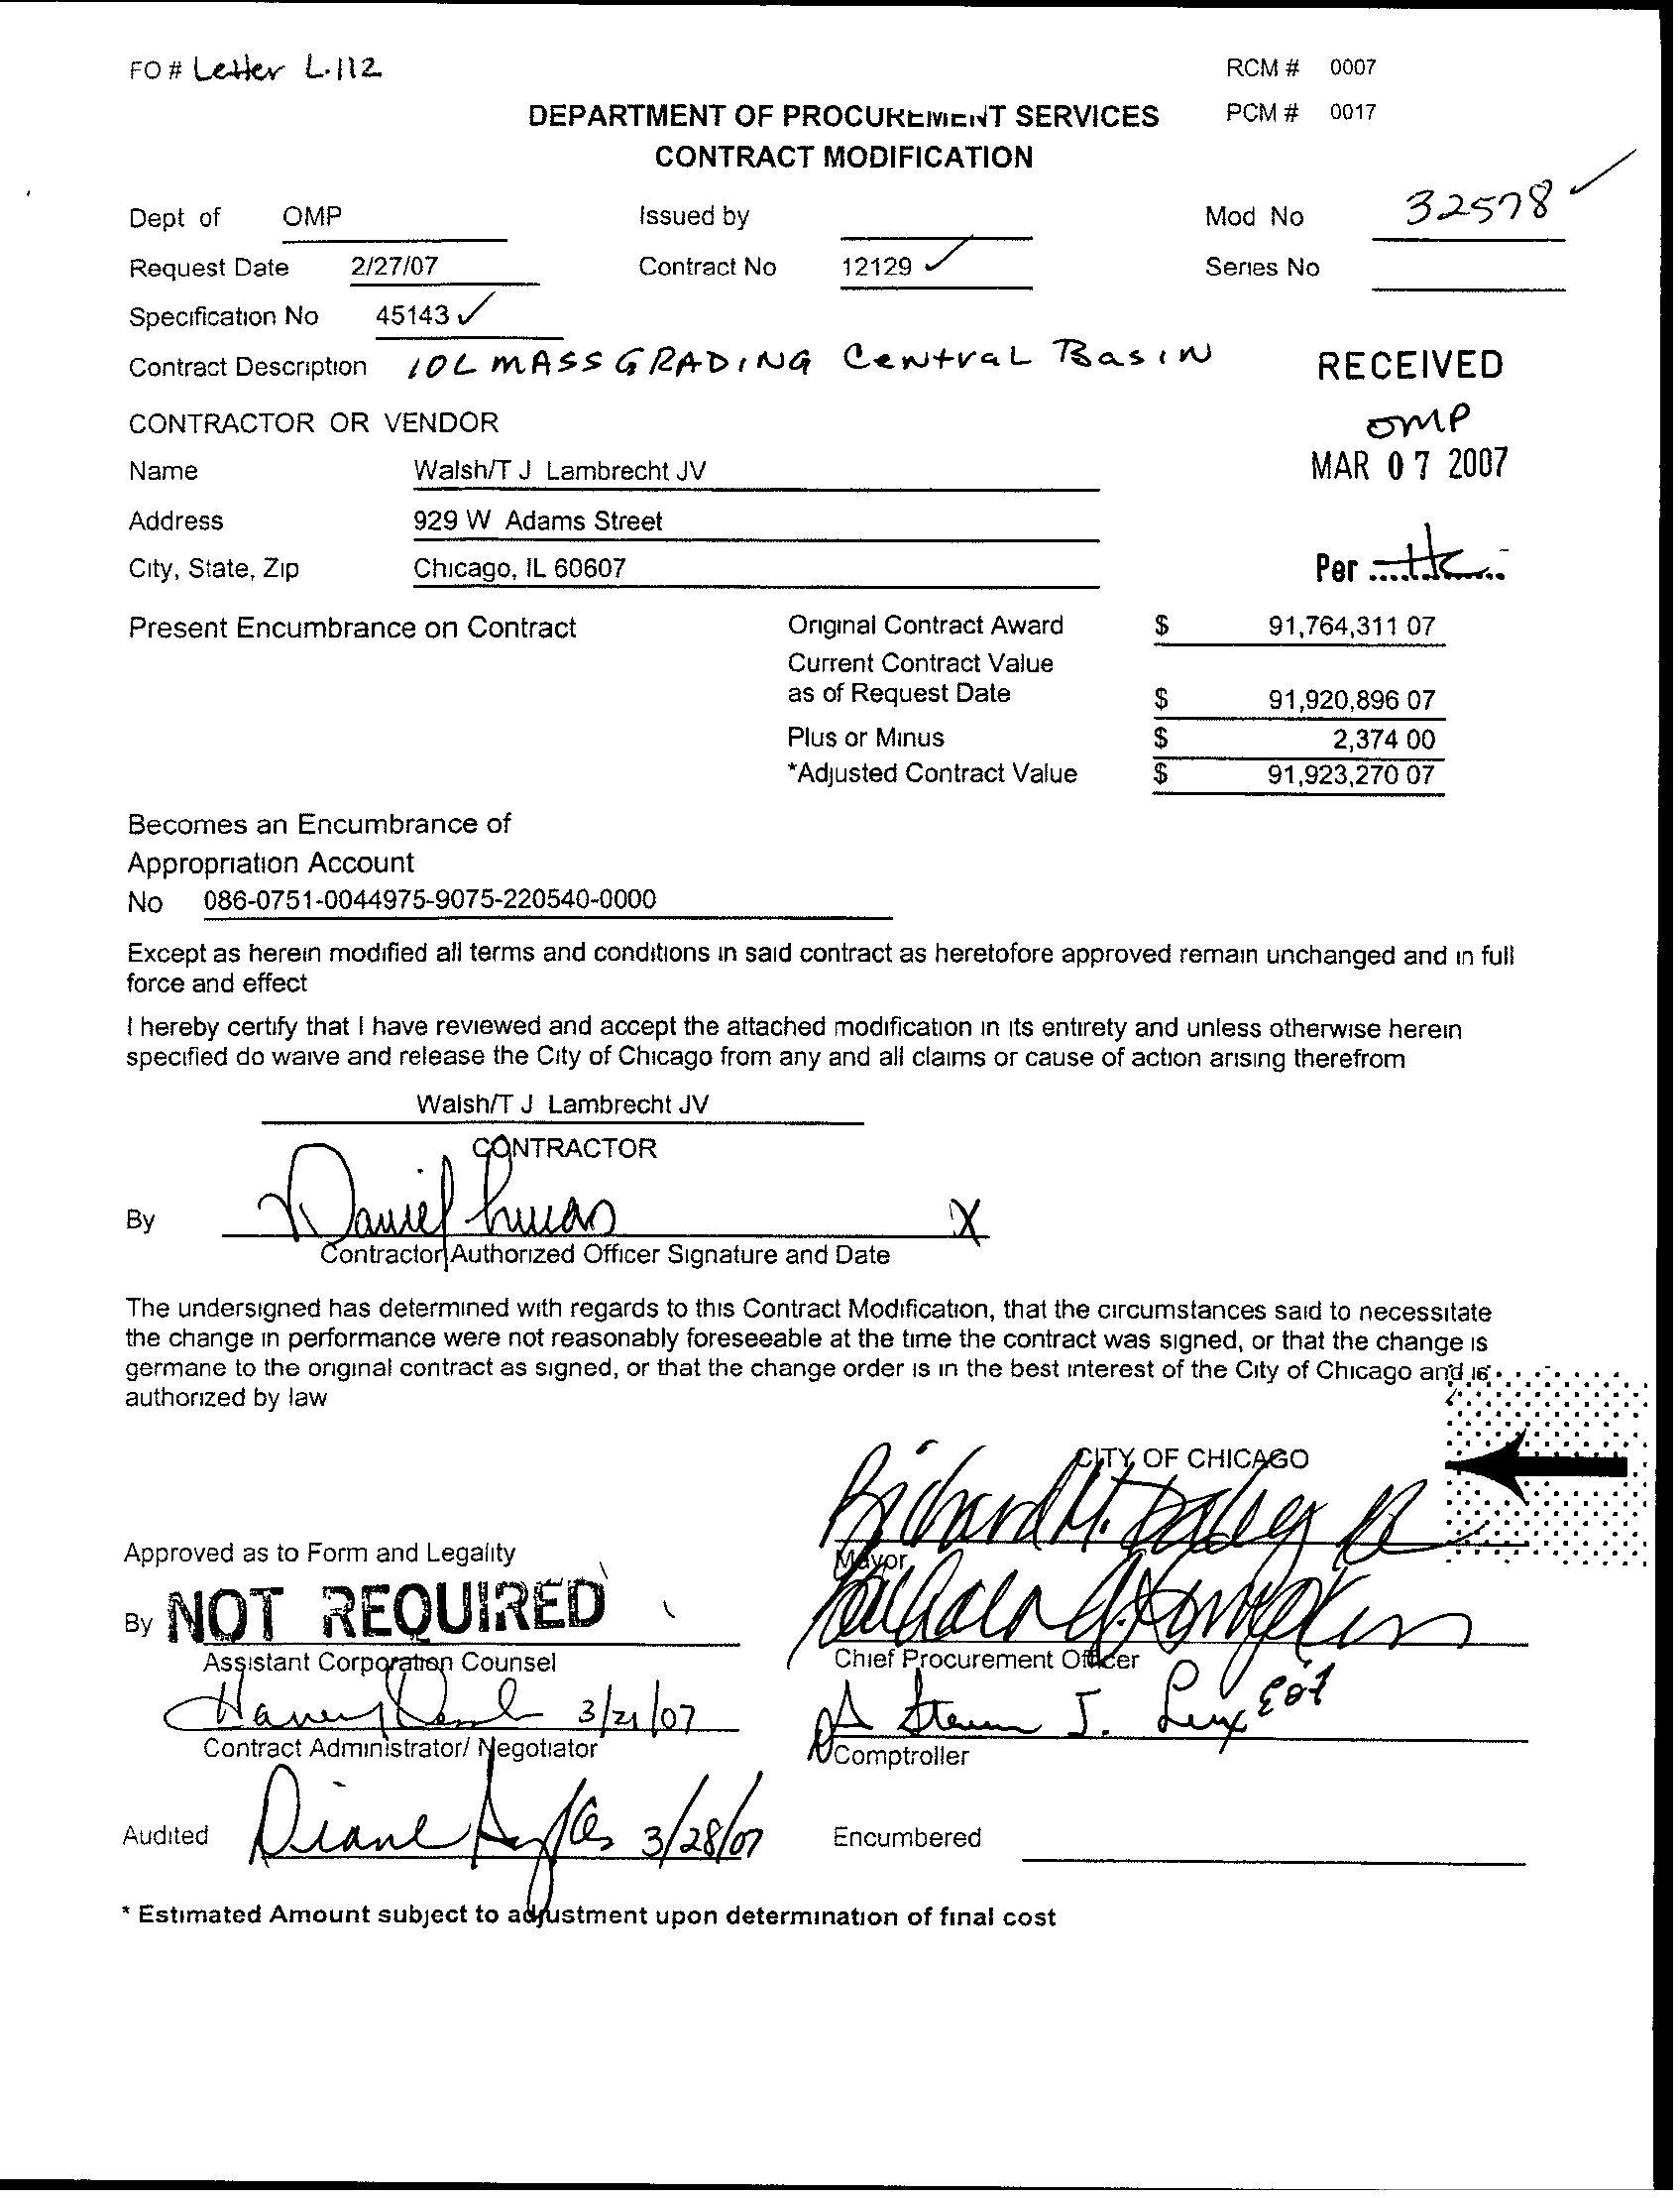 FO # Letter L.112
RCM # 0007
DEPARTMENT OF PROCUREMENT SERVICES
PCM # 0017
CONTRACT MODIFICATION
Dept of OMP Issued by Mod No 32578
Request Date 2/27/07 Contract No 12129 Series No
Specification No 45143
Contract Description 10L MASS GRADING Central Basin
RECEIVED
OMP
MAR 07 2007
Per
CONTRACTOR OR VENDOR
Name Walsh/T J Lambrecht JV
Address 929 W Adams Street
City, State, Zip Chicago, IL 60607
Present Encumbrance on Contract Original Contract Award $ 91,764,311 07
Current Contract Value
as of Request Date $ 91,920,896 07
Plus or Minus $ 2,374 00
*Adjusted Contract Value $ 91,923,270 07
Becomes an Encumbrance of
Appropriation Account
No 086-0751-0044975-9075-220540-0000
Except as herein modified all terms and conditions in said contract as heretofore approved remain unchanged and in full
force and effect
I hereby certify that I have reviewed and accept the attached modification in its entirety and unless otherwise herein
specified do waive and release the City of Chicago from any and all claims or cause of action arising therefrom
Walsh/T J Lambrecht JV
CONTRACTOR
By Daniel X
Contractor Authorized Officer Signature and Date
The undersigned has determined with regards to this Contract Modification, that the circumstances said to necessitate
the change in performance were not reasonably foreseeable at the time the contract was signed, or that the change is
germane to the original contract as signed, or that the change order is in the best interest of the City of Chicago and is
authorized by law
CITY OF CHICAGO
Richard M. Daley
Approved as to Form and Legality
Mayor
By NOT REQUIRED
Assistant Corporation Counsel
Chief Procurement Officer
3/21/07
Steven J. Lux
Contract Administrator/ Negotiator
Comptroller
Audited Diane 3/28/07 Encumbered
* Estimated Amount subject to adjustment upon determination of final cost